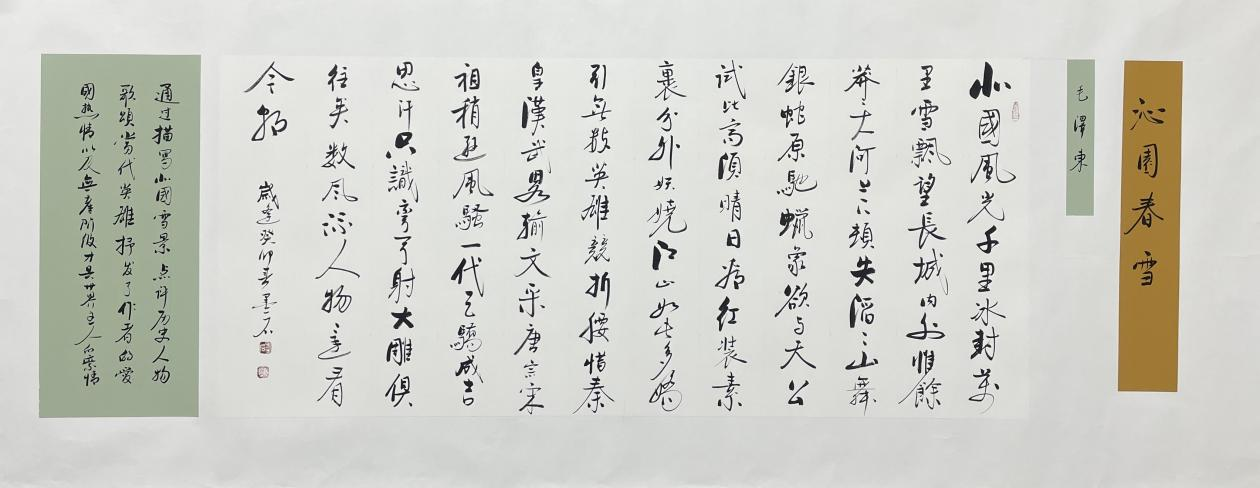 沁園春雪
毛澤東
北國風光千里冰封萬
里雪飄望長城內外惟餘
莽々大河上下頓失滔々山舞
銀蛇原馳蠟象欲与天公
試比高須晴日看红裝素
裹分外妖嬈江山如此多嬌
引無數英雄競折腰惜秦
皇漢武畧輸文采唐宗宋
祖稍遜風騷一代天驕成吉
思汗只識彎弓射大雕俱
往矣数风流人物還看
今朝
歲逢癸卯春墨石
通过描寫北國雪景点评历史人物
歌頌當代英雄抒发了作者的愛
國热情以及無產阶级才是世界主人的豪情